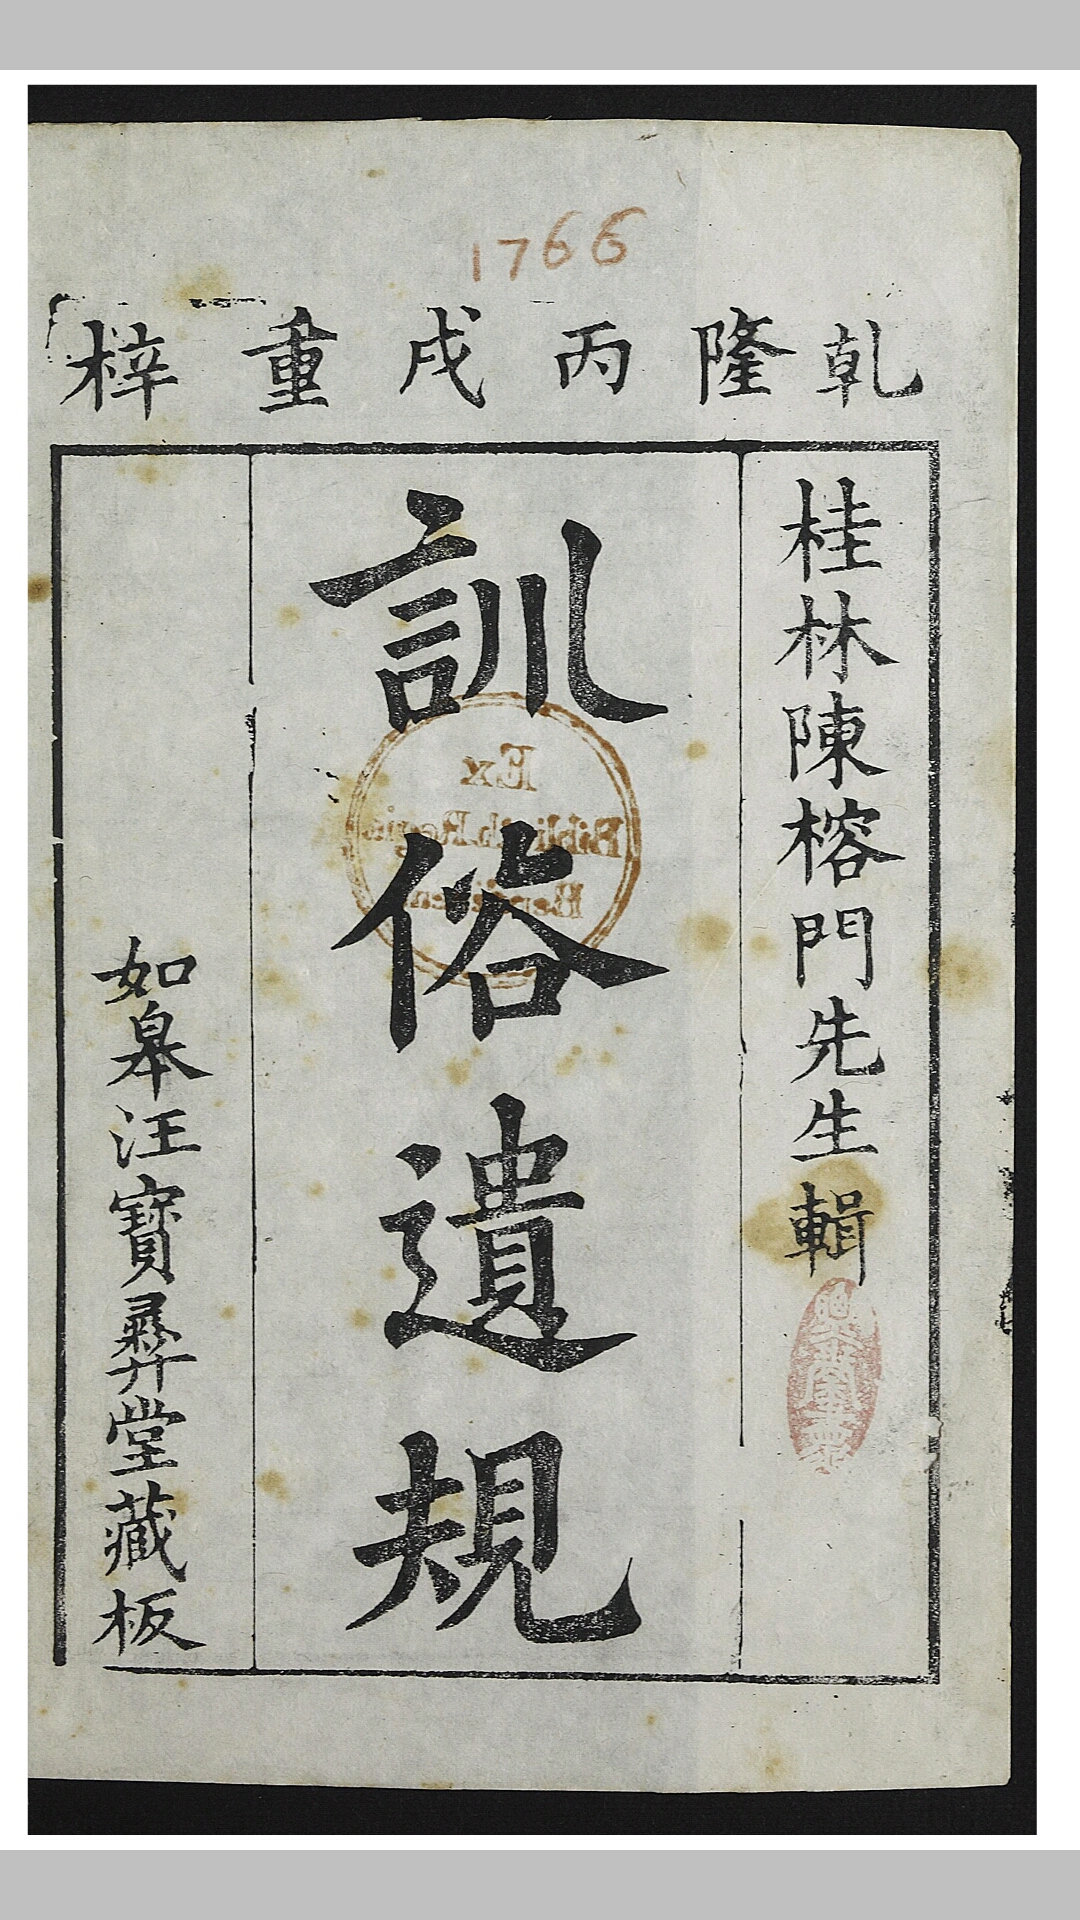 1766
乾隆丙戌重梓
桂林陳榕門先生輯
訓俗遺規
如皋汪寶彞堂藏板
Ex
Biblioth. Regia
Berolinen